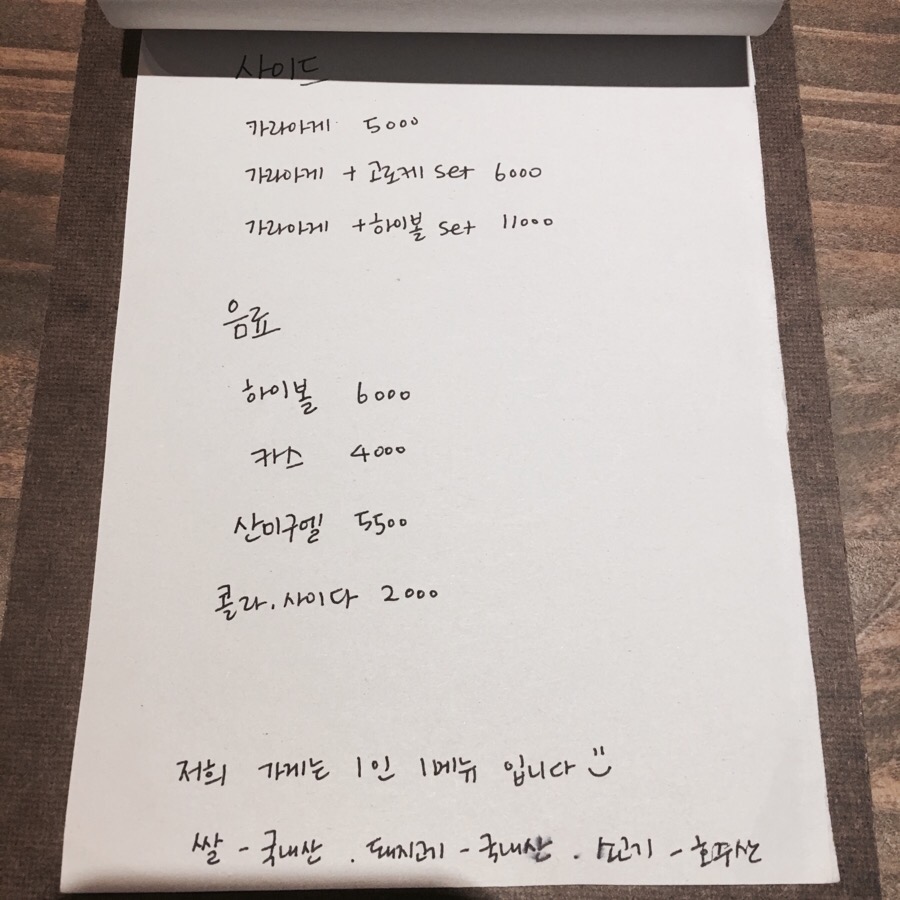 사이드
카라아게 5000
가라아게 + 고로케 set 6000
가라아게 +하이볼 set 11000
음료
하이볼 6000
카스 4000
산미구엘 5500
콜라.사이다 2000
저희 가게는 1인 1메뉴 입니다
쌀 - 국내산 . 돼지고기 - 국내산 . 소고기 - 호주산